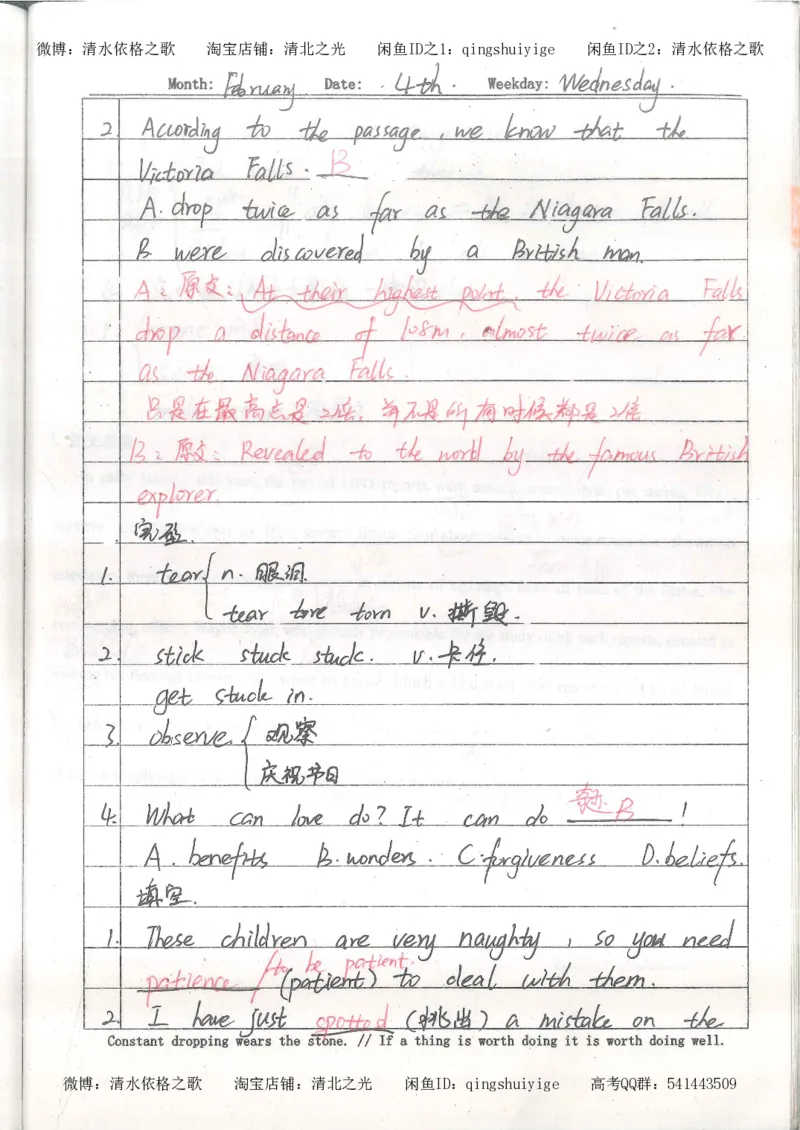 微博：清水依格之歌 淘宝店铺：清北之光 闲鱼ID之1：qingshuiyige 闲鱼ID之2：清水依格之歌
Month: February Date: 4th. Weekday: Wednesday.
2. According to the passage, we know that the
Victoria Falls. B
A. drop twice as far as the Niagara Falls.
B. were discovered by a British man.
A：原文：At their highest point, the Victoria Falls
drop a distance of 108m, almost twice as far
as the Niagara Falls.
只是在最高点是2倍，并不是所有时候都是2倍
B：原文：Revealed to the world by the famous British
explorer.
完型.
1. tear { n. 眼泪.
tear tore torn v. 撕毁.
2. stick stuck stuck. v. 卡住.
get stuck in.
3. observe { 观察
庆祝节日
4. What can love do? It can do 奇迹. B !
A. benefits B. wonders. C. forgiveness D. beliefs.
填空.
1. These children are very naughty, so you need
patience / to be patient. (patient) to deal with them.
2. I have just spotted (挑出) a mistake on the
Constant dropping wears the stone. // If a thing is worth doing it is worth doing well.
微博：清水依格之歌 淘宝店铺：清北之光 闲鱼ID：qingshuiyige 高考QQ群：541443509